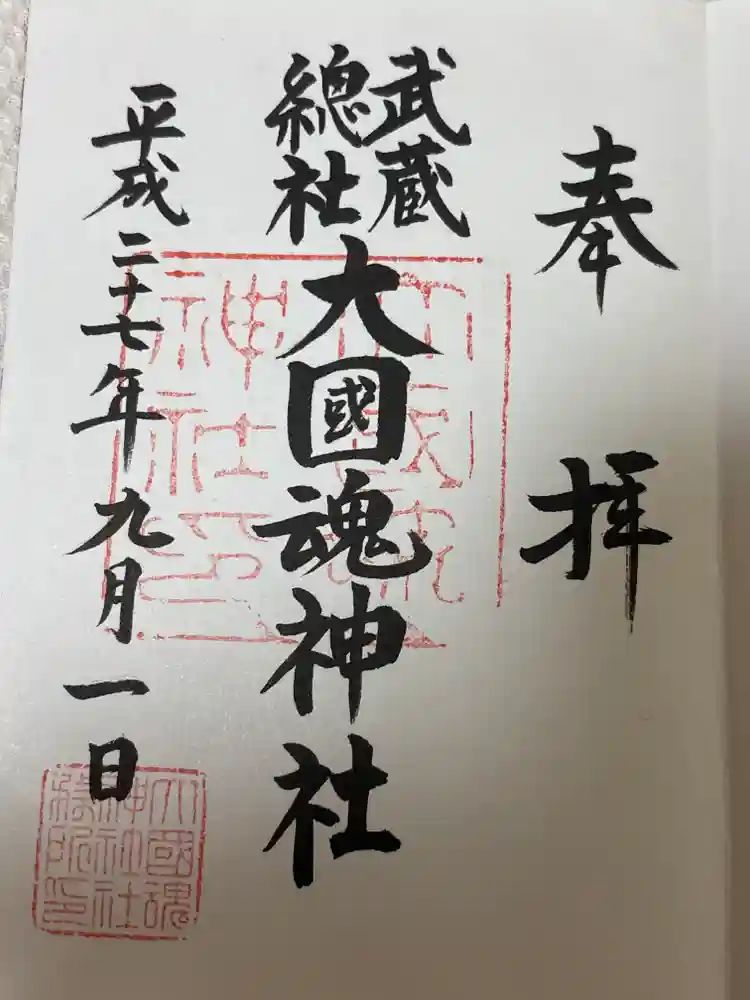 奉拝
武蔵
總社
大國魂神社
平成二十七年九月一日
大國魂
神社社
務所印